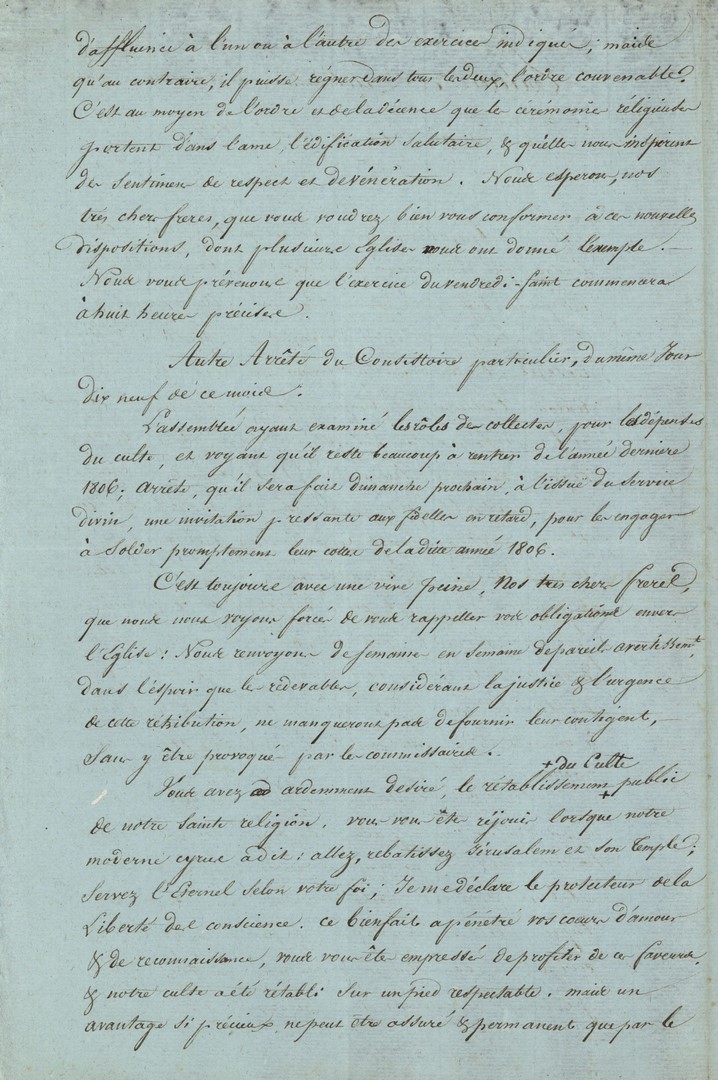 d'affluence à l'un ou à l'autre des exercices indiqués; mais
qu'au contraire, il puisse régner dans tous les deux, l'ordre convenable.
C'est au moyen de l'ordre et de la décence que les cérémonies réligieuses
portent dans l'ame, l'édification salutaire, & qu'elles nous inspirent
des sentimens de respect et de vénération. Nous esperons, nos
tres chers freres, que vous voudrez bien vous conformer à ces nouvelles
dispositions, dont plusieurs Eglises vous ont donné l'exemple. —
Nous vous prévenons que l'exercice du vendredi-saint commencera
à huit heures précises.
Autre Arrêté du Consistoire particulier, du même Jour
dix neuf de ce mois.
L'assemblée ayant examiné les rôles des collectes, pour les dépenses
du culte, et voyant qu'il reste beaucoup à rentrer de l'année derniere
1806; arrête, qu'il sera fait dimanche prochain, à l'issuë du Service
divin, une invitation pressante aux fidelles en retard, pour les engager
à Solder promptement leur cotte de la dite année 1806.
C'est toujours avec une vive peine, Nos tres chers freres,
que nous nous voyons forcés de vous rappeller vos obligations envers
l'Eglise: Nous renvoyons de semaine en semaine de pareils avertissemts,
dans l'éspoir que les rédevables, considérant la justice & l'urgence
de cette rétribution, ne manqueront pas de fournir leur contigent, —
sans y être provoqués par les commissaires. —
+ du Culte
Vous avez ardemment desiré, le rétablissement + public
de notre sainte religion, vous vous ête réjouis lorsque notre
moderne cyrus a dit: allez, rebatissez Jérusalem et son Temple;
servez l'Eternel selon votre foi; Je me déclare le protecteur de la
Liberté des conscience. ce bienfait a pénétré vos cœurs d'amour
& de reconnaissance, vous vous ête empressés de profiter de ces faveurs,
& notre culte a été rétabli sur un pied respectable. mais un
avantage si précieux ne peut être assuré & permanent que par le